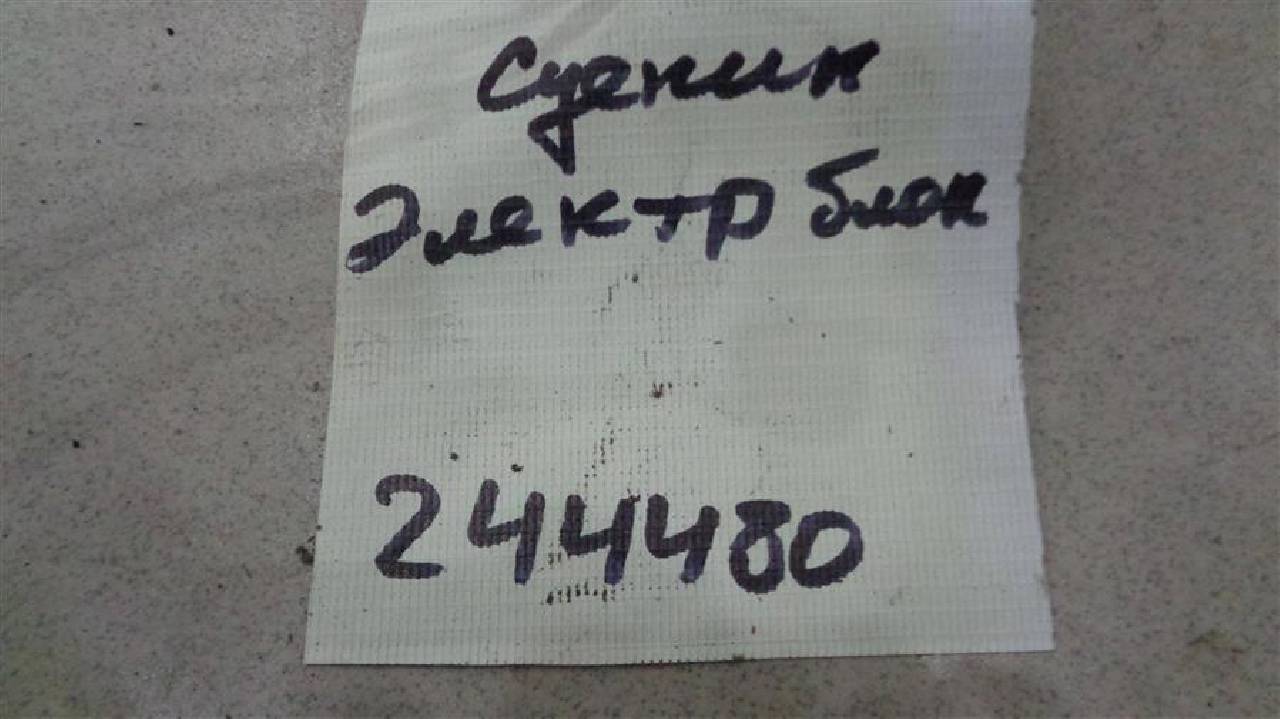 Сценик
Электр блок
244480